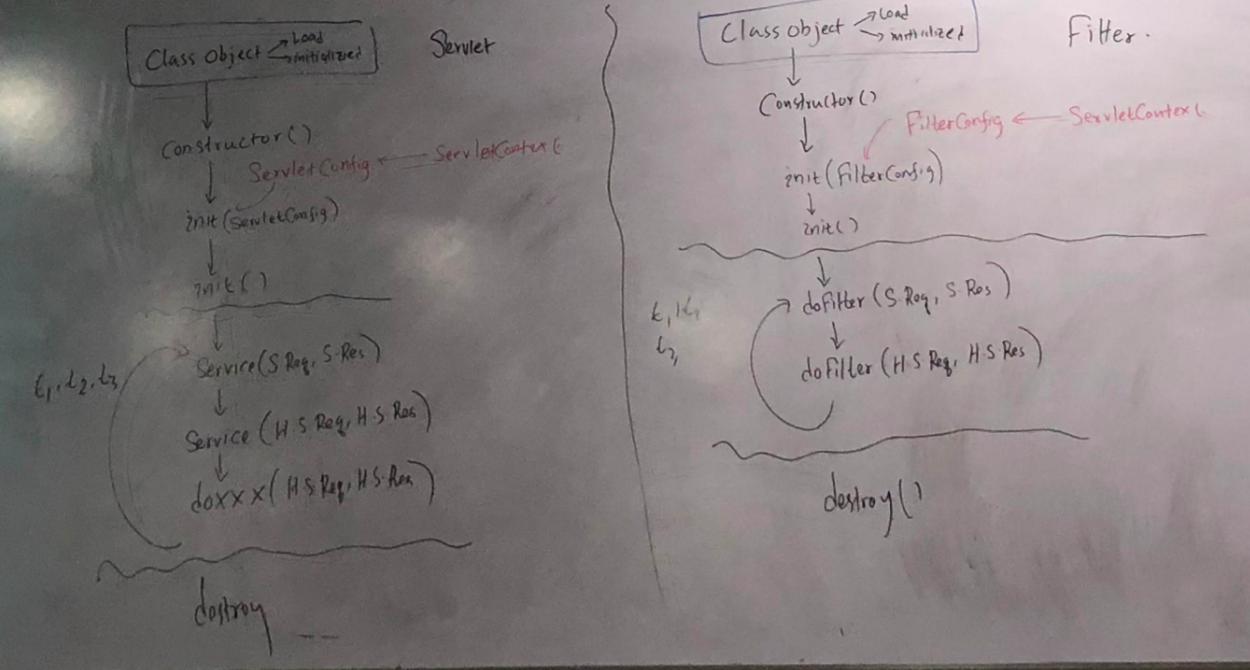 Servlet
Class Object → Load
→ initialized
Constructor()
ServletConfig ← ServletContext
init(ServletConfig)
init()
t1, t2, t3
Service(S.Req, S.Res)
Service (H.S.Req, H.S.Res)
doxxx(H.S.Req, H.S.Res)
destroy
Filter.
Class Object → Load
→ initialized
Constructor()
FilterConfig ← ServletContext
init(FilterConfig)
init()
doFilter (S.Req, S.Res)
doFilter (H.S.Req, H.S.Res)
destroy()